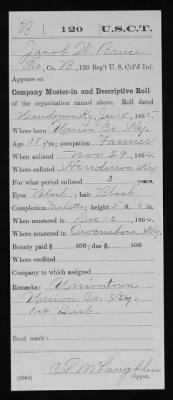 B | 120 | U.S.C.T.
Jacob W. Bruce
Pvt, Co. B, 120 Reg't U. S. Col'd Inf.
Appears on
Company Muster-in and Descriptive Roll
of the organization named above. Roll dated
Henderson Ky, Jan 5, 1865.
Where born Union Co. Ky.
Age 38 y'rs; occupation Farmer
When enlisted Nov 29, 1864.
Where enlisted Henderson Ky
For what period enlisted years.
Eyes Black; hair Black
Complexion Mulatto; height 5 ft. 6 in.
When mustered in Dec 12, 1864.
Where mustered in Owensboro, Ky.
Bounty paid $ 100; due $ 100
Where credited
Company to which assigned
Remarks: Uniontown
Union Co. Ky.
1st Dist.
Book mark:
McLaughlin
Copyist.